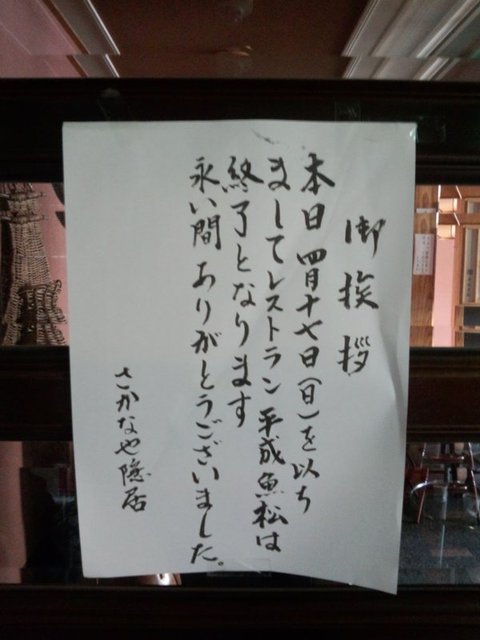 御挨拶
本日四月十七日(日)を以ち
ましてレストラン平成魚松は
終了となります
永い間ありがとうございました。
さかなや隠居